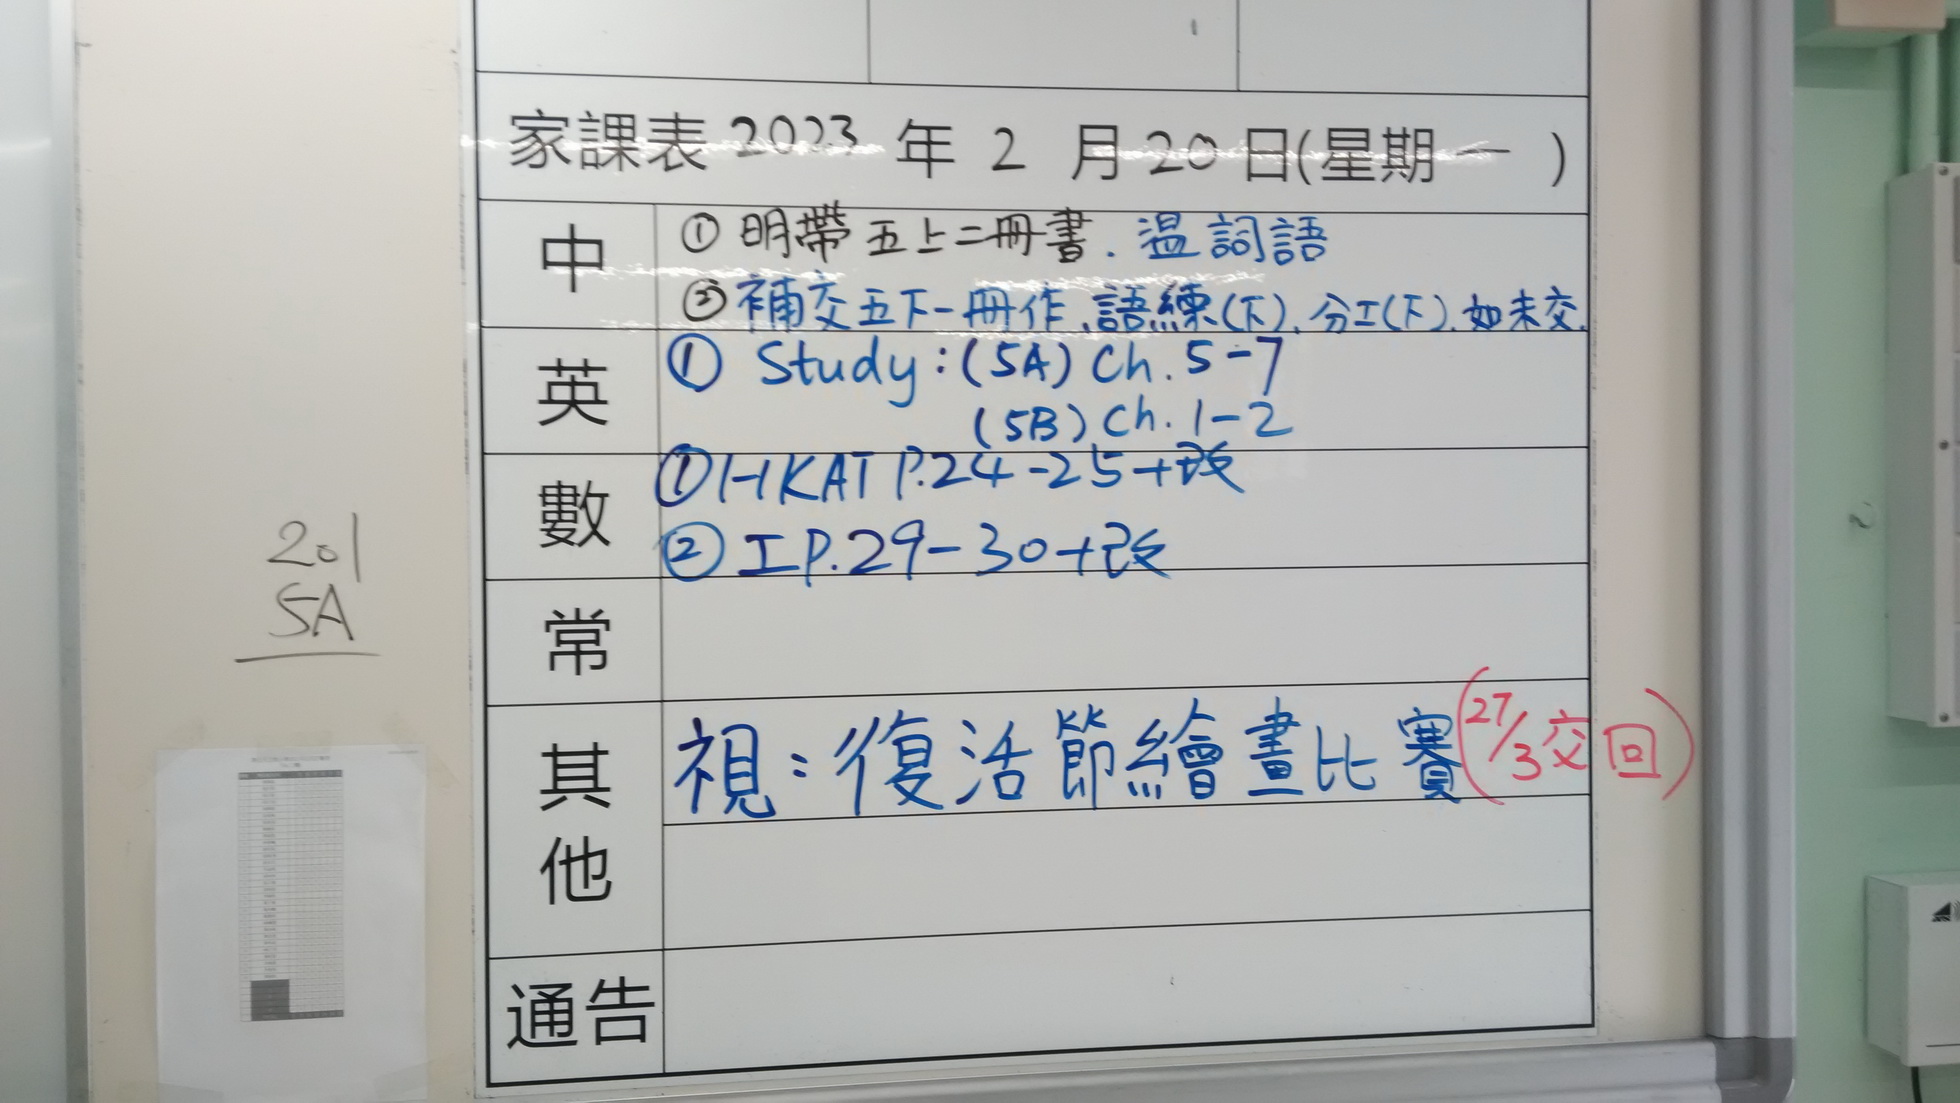 家課表 2023 年 2 月 20 日(星期一 )
中
① 明帶五上二冊書. 溫詞語
② 補交五下一冊作、語練(下)、分工(下), 如未交.
英
① Study: (5A) Ch. 5-7
(5B) Ch. 1-2
數
① HKAT P.24-25+改
② 工 P.29-30+改
常
其他
視:復活節繪畫比賽(27/3交回)
通告
201
5A